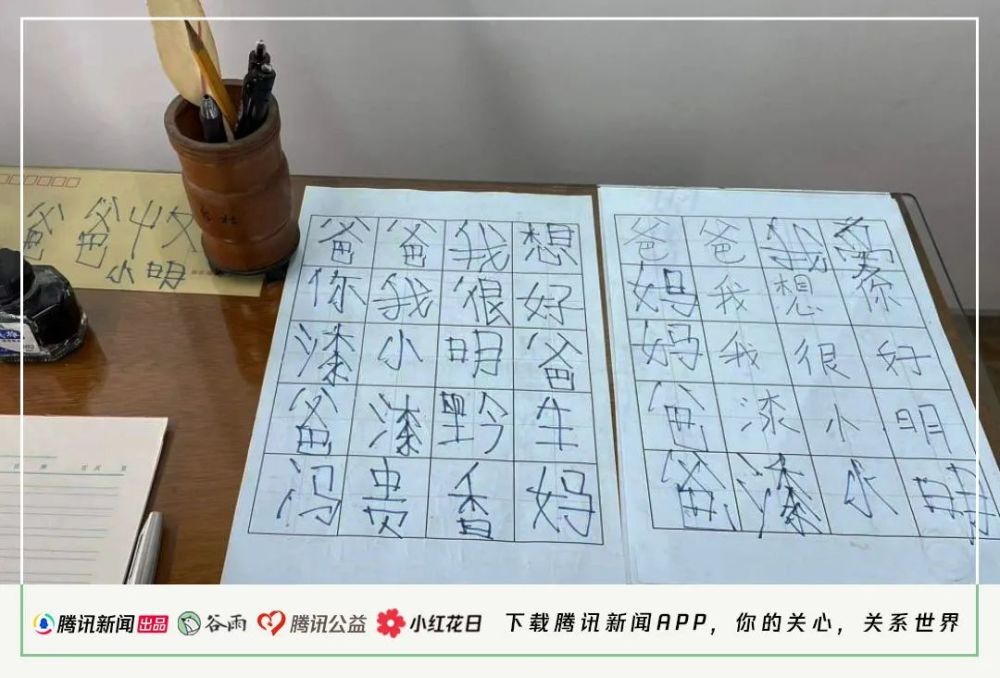 爸爸收
小明
爸爸我想
你我很好
漆小明爸
爸漆黔生
冯贵香妈
爸爸我爱
妈我想你
妈我很好
爸漆小明
爸漆小明
腾讯新闻出品 谷雨 腾讯公益 小红花日 下载腾讯新闻APP，你的关心，关系世界